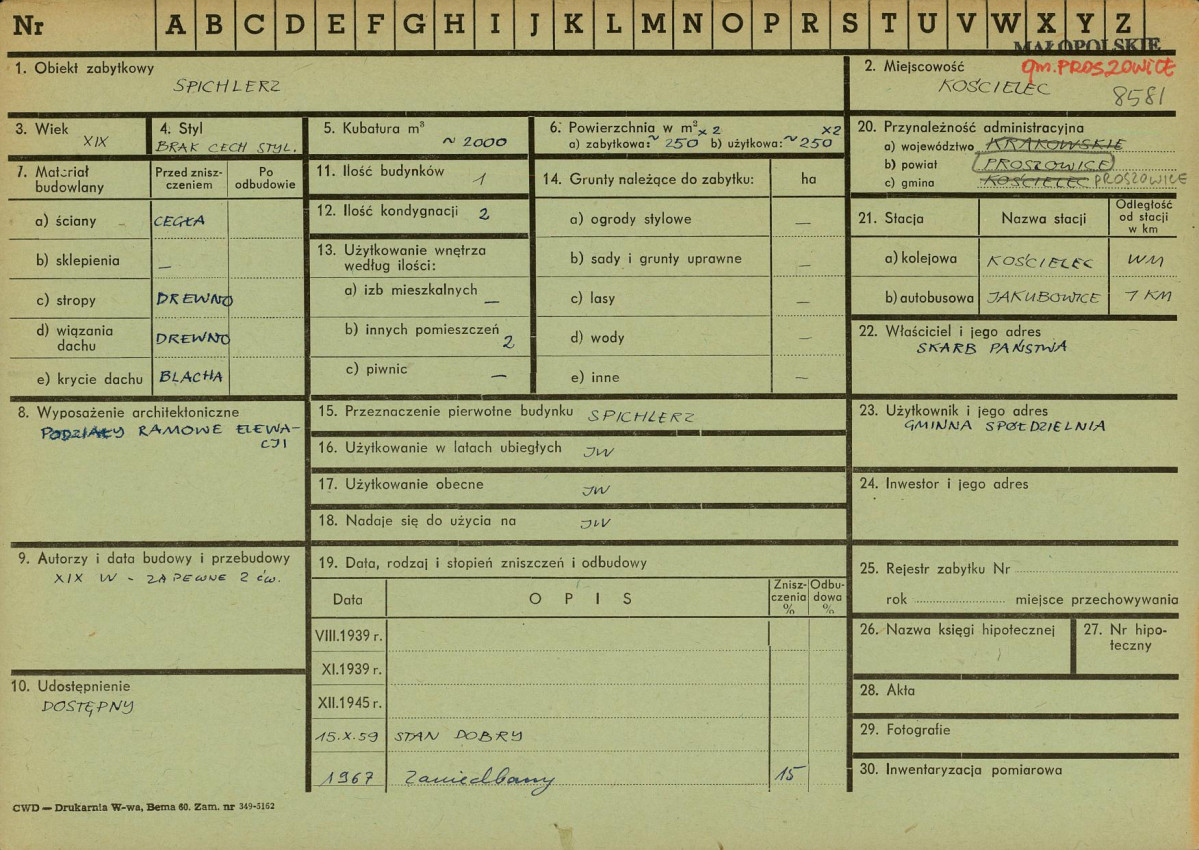 Nr A B C D E F G H I J K L M N O P R S T U V W X Y Z
MAŁOPOLSKIE
gm. PROSZOWICE
1. Obiekt zabytkowy
SPICHLERZ
2. Miejscowość
KOŚCIELEC
8581
3. Wiek
XIX
4. Styl
BRAK CECH STYL.
5. Kubatura m³
~ 2000
6. Powierzchnia w m² x 2 x2
a) zabytkowa: ~ 250 b) użytkowa: ~ 250
7. Materiał budowlany
Przed zniszczeniem
Po odbudowie
a) ściany CEGŁA
b) sklepienia —
c) stropy DREWNO
d) wiązania dachu DREWNO
e) krycie dachu BLACHA
8. Wyposażenie architektoniczne
PODZIAŁY RAMOWE ELEWA-
CJI
9. Autorzy i data budowy i przebudowy
XIX W - ZAPEWNE 2 ćw.
10. Udostępnienie
DOSTĘPNY
11. Ilość budynków 1
12. Ilość kondygnacji 2
13. Użytkowanie wnętrza
według ilości:
a) izb mieszkalnych —
b) innych pomieszczeń 2
c) piwnic —
14. Grunty należące do zabytku: ha
a) ogrody stylowe —
b) sady i grunty uprawne —
c) lasy —
d) wody —
e) inne —
15. Przeznaczenie pierwotne budynku SPICHLERZ
16. Użytkowanie w latach ubiegłych JW
17. Użytkowanie obecne JW
18. Nadaje się do użycia na JW
19. Data, rodzaj i stopień zniszczeń i odbudowy
Data OPIS Zniszczenia % Odbudowa %
VIII.1939 r.
XI.1939 r.
XII.1945 r.
15.X.59 STAN DOBRY
1967 Zaniedbany 15
20. Przynależność administracyjna
a) województwo KRAKOWSKIE
b) powiat PROSZOWICE
c) gmina KOŚCIELEC PROSZOWICE
21. Stacja Nazwa stacji Odległość od stacji w km
a) kolejowa KOŚCIELEC WM
b) autobusowa JAKUBOWICE 1 KM
22. Właściciel i jego adres
SKARB PAŃSTWA
23. Użytkownik i jego adres
GMINNA SPÓŁDZIELNIA
24. Inwestor i jego adres
25. Rejestr zabytku Nr
rok miejsce przechowywania
26. Nazwa księgi hipotecznej
27. Nr hipo-
teczny
28. Akta
29. Fotografie
30. Inwentaryzacja pomiarowa
CWD — Drukarnia W-wa, Bema 60. Zam. nr 349-5162